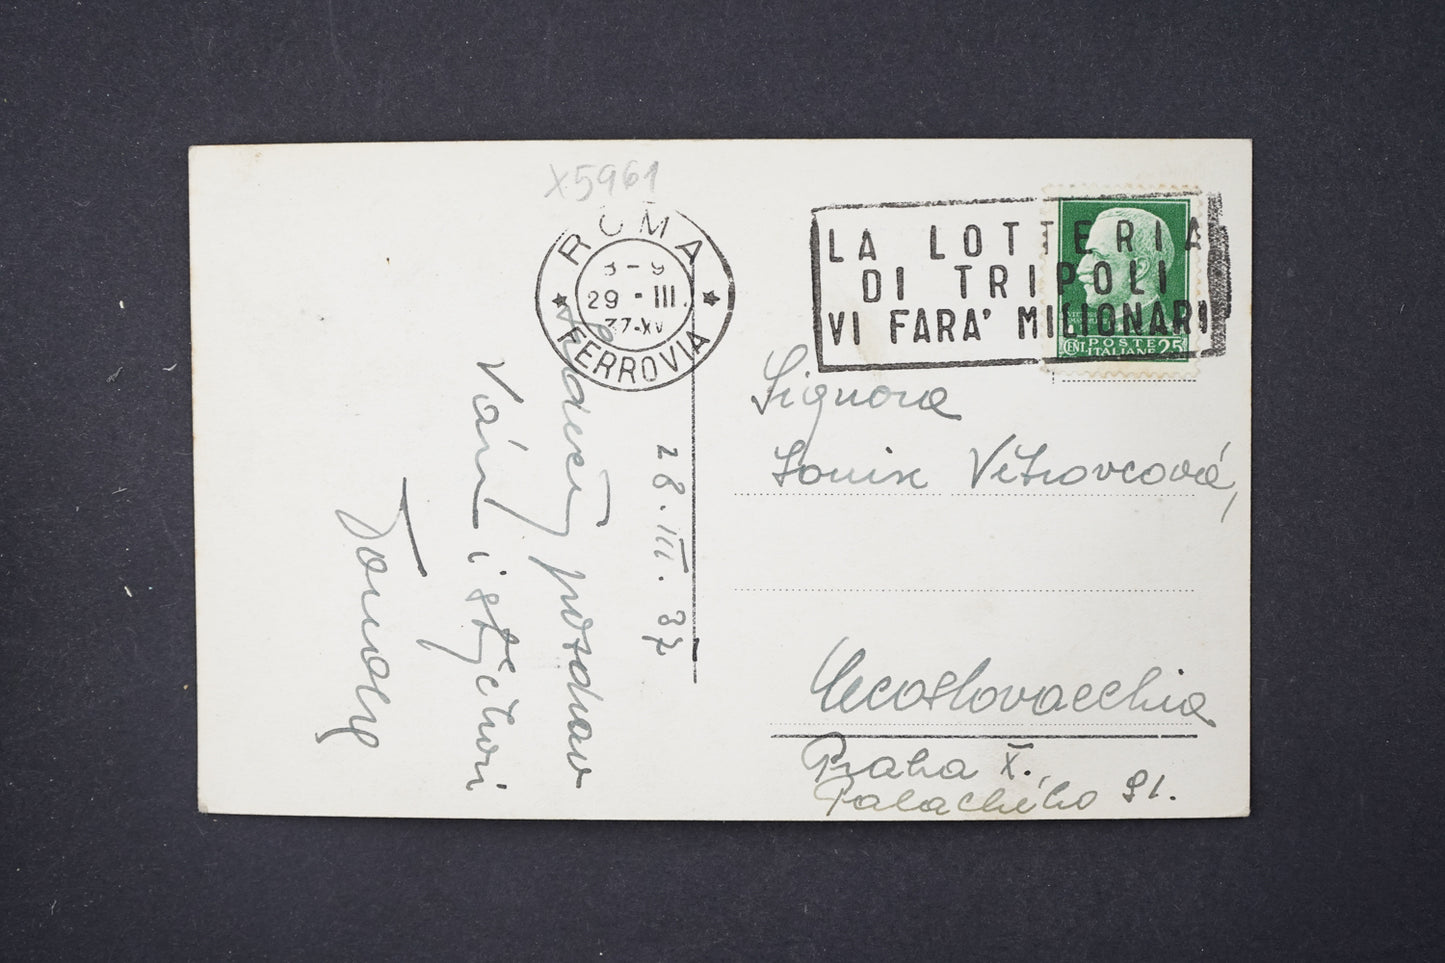 X5961
ROMA
8-9
29-III.
37-XV
FERROVIA
LA LOTTERIA
DI TRIPOLI
VI FARA' MILIONARI
CENT. POSTE 25
ITALIANE
28. III. 37
Srdečný pozdrav
Vám i
Signora
Louise Vítovcová,
Cecoslovacchia
Praha X.
Palackého 91.